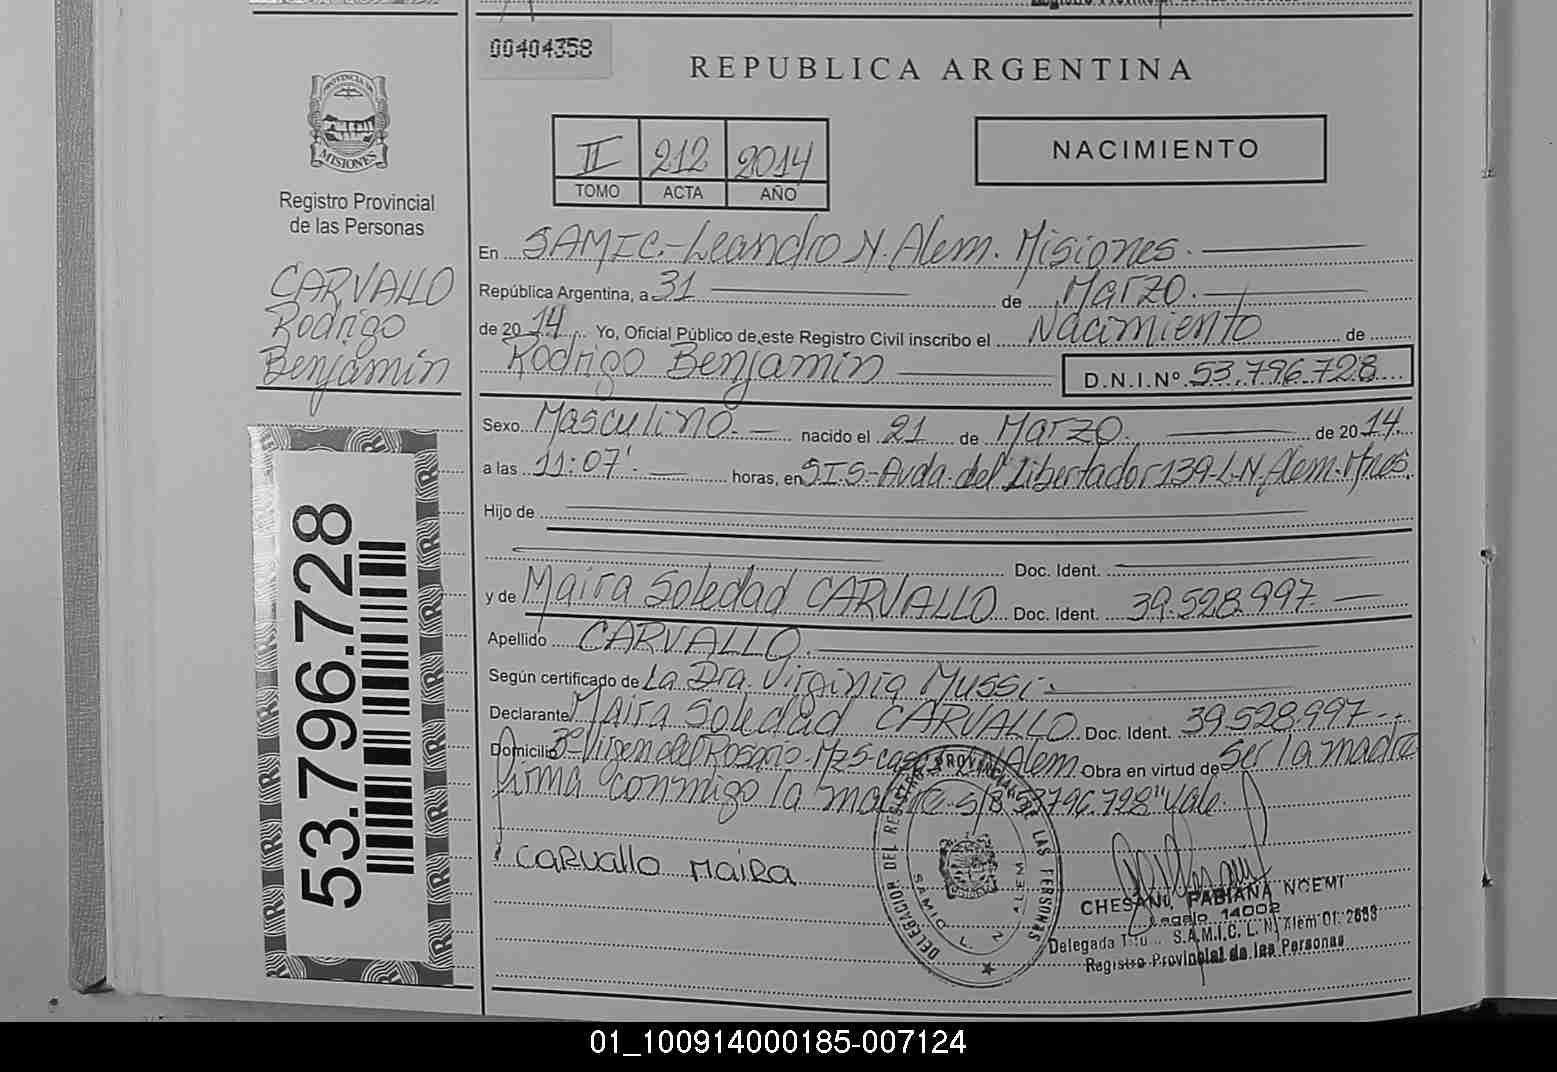 00404358
REPUBLICA ARGENTINA
PROVINCIA DE
MISIONES
Registro Provincial
de las Personas
CARVALLO
Rodrigo
Benjamín
II 212 2014
TOMO ACTA AÑO
NACIMIENTO
En SAMIC.-Leandro N. Alem. Misiones.
República Argentina, a 31 de Marzo.
de 20 14 Yo, Oficial Público de este Registro Civil inscribo el Nacimiento de
Rodrigo Benjamín D.N.I.Nº 53.796.728
Sexo Masculino. nacido el 21 de Marzo. de 20 14.
a las 11:07'. horas, en S.I.S-Avda. del Libertador 139-L.N. Alem. Mnes.
Hijo de
Doc. Ident.
y de Maira Soledad CARVALLO Doc. Ident. 39.528.997.
Apellido CARVALLO.
Según certificado de La Dra. Virginia Mussi.
Declarante Maira Soledad CARVALLO. Doc. Ident. 39.528.997-.
Domicilio Bº Virgen del Rosario-Mz5-casa Alem Obra en virtud de Ser la madre
firma conmigo la madre. S/B 796.728" Vale.
Carvallo Maira
53.796.728
DELEGACION DEL REGISTRO PROVINCIAL DE LAS PERSONAS
SAMIC L. N. ALEM
CHESANI, FABIANA NOEMI
Legajo 14002
Delegada S.A.M.I.C. L. N. Alem Of. 2653
Registro Provincial de las Personas
01_100914000185-007124